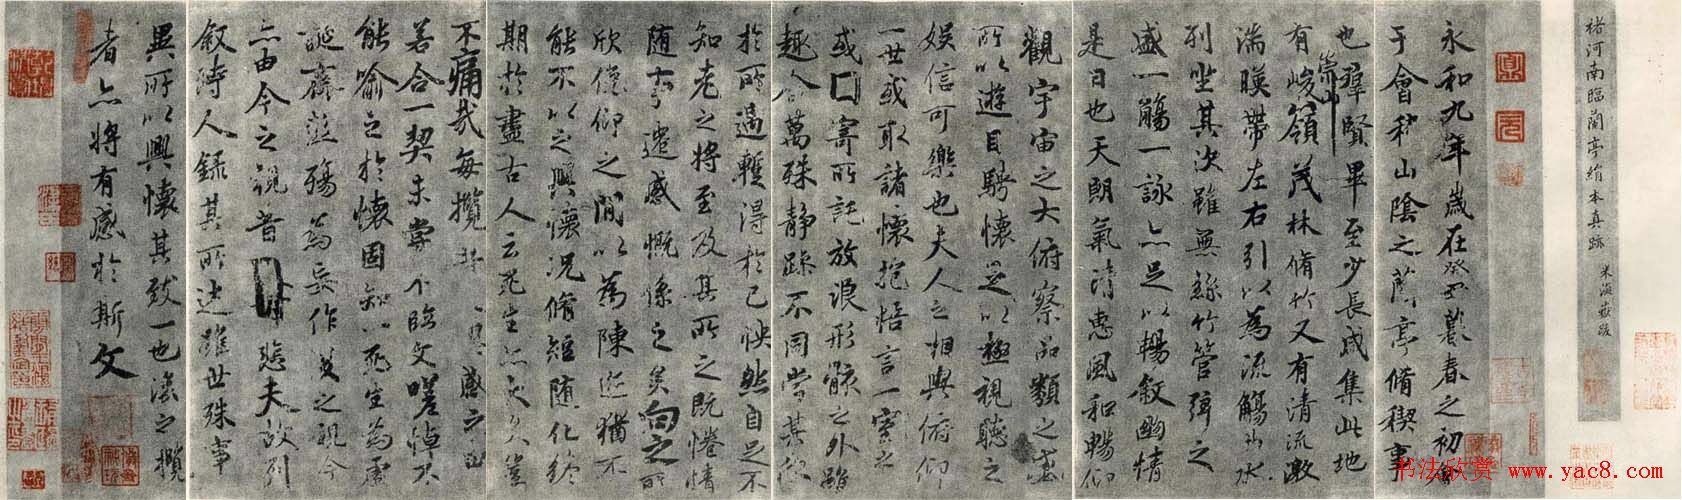 褚河南臨蘭亭絹本真跡
米海嶽跋
永和九年歲在癸丑暮春之初
于會稽山陰之蘭亭脩稧事
也羣賢畢至少長咸集此地
有崇山峻嶺茂林脩竹又有清流激
湍暎帶左右引以為流觴曲水
列坐其次雖無絲竹管弦之
盛一觴一詠亦足以暢敘幽情
是日也天朗氣清惠風和暢仰
觀宇宙之大俯察品類之盛
所以遊目騁懷足以極視聽之
娛信可樂也夫人之相與俯仰
一世或取諸懷抱悟言一室之
或寄所託放浪形骸之外雖
趣舍萬殊靜躁不同當其欣
於所遇暫得於己怏然自足不
知老之將至及其所之既惓情
隨事遷感慨係之矣向之所
欣俛仰之間以為陳迹猶不
能不以之興懷況脩短隨化終
期於盡古人云死生亦大矣豈
不痛哉每攬昔 興感之由
若合一契未嘗不臨文嗟悼不
能喻之於懷固知一死生為虛
誕齊彭殤為妄作後之視今
亦由今之視昔 悲夫故列
敘時人錄其所述雖世殊事
異所以興懷其致一也後之攬
者亦將有感於斯文
书法欣赏 www.yac8.com